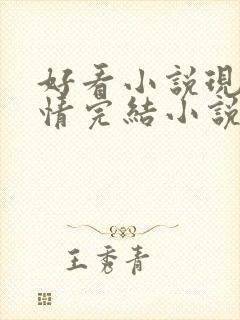 好看小説現
情完結小説
王秀青